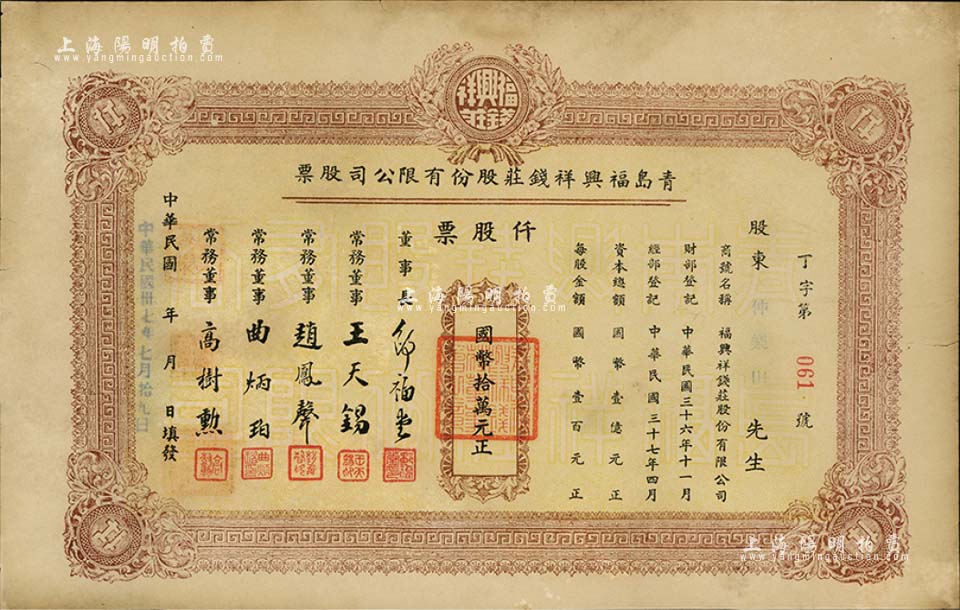 上海陽明拍賣
www.yangmingauction.com
福興祥
錢莊
仟
仟
青島福興祥錢莊股份有限公司股票
仟股票
丁字第 061 號
股東 仲 山 先生
商號名稱 福興祥錢莊股份有限公司
財部登記 中華民國三十六年十一月
經部登記 中華民國三十七年四月
資本總額 國幣壹億元正
每股金額 國幣壹百元正
國幣拾萬元正
董事長 福
常務董事 王天錫
常務董事 趙鳳聲
常務董事 曲炳珀
常務董事 高樹勲
中華民國 年 月 日填發
中華民國卅七年七月拾九日
仟
仟
上海陽明拍賣
www.yangmingauction.com
上海陽明拍賣
www.yangmingauction.com